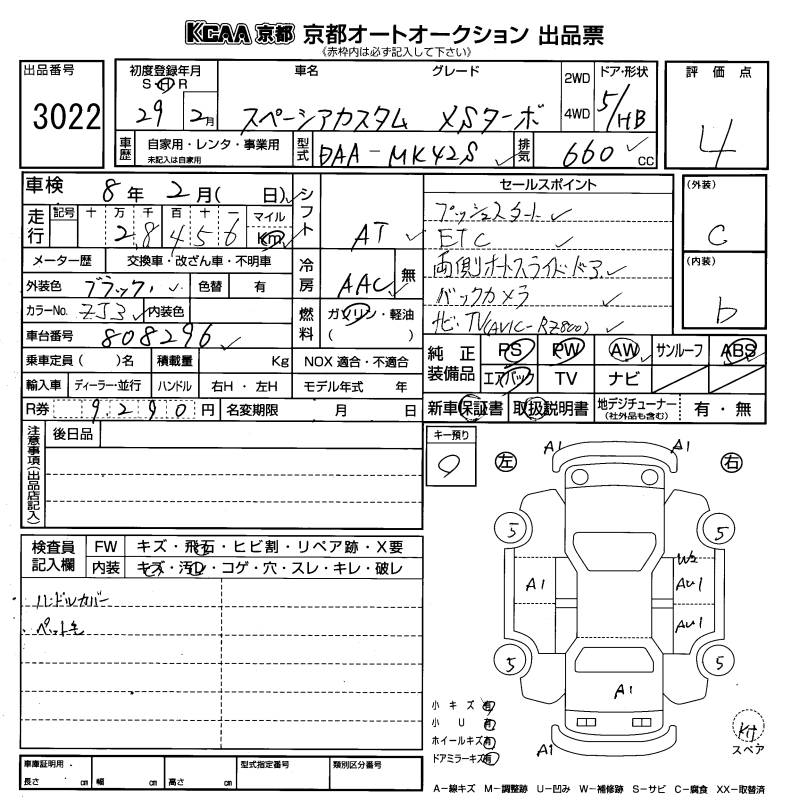 KCAA 京都 京都オートオークション 出品票
(赤枠内は必ず記入して下さい)
出品番号 3022
初度登録年月 S・H・R 29 2月
車名 グレード スペーシアカスタム XSターボ
2WD 4WD
ドア・形状 5/HB
評価点 4
車歴 自家用・レンタ・事業用 未記入は自家用
型式 DAA-MK42S
排気 660 cc
車検 8年 2月( 日)
走行 記号 十 万 千 百 十 一 マイル km
2 8 4 5 6
メーター歴 交換車・改ざん車・不明車
外装色 ブラック 色替 有
カラーNo. ZJ3 内装色
車台番号 808296
乗車定員 ( )名 積載量 Kg
輸入車 ディーラー・並行 ハンドル 右H・左H
R券 9290円 名変期限 月 日
シフト AT
冷房 AAC 無
燃料 ガソリン・軽油 ( )
NOX 適合・不適合
モデル年式 年
セールスポイント
プッシュスタート
ETC
両側オートスライドドア
バックカメラ
ナビ・TV(AVIC-RZ800)
(外装) C
(内装) b
純正装備品 PS PW AW サンルーフ ABS
エアバック TV ナビ
新車保証書 取扱説明書 地デジチューナー (社外品も含む) 有・無
注意事項(出品店記入)
後日品
キー預り 0
検査員記入欄
FW キズ・飛石・ヒビ割・リペア跡・X要
内装 キズ・汚レ・コゲ・穴・スレ・キレ・破レ
ハンドルカバー
ペット毛
左 右
A1 A1
5 5
W2
A1 AU1
AU1
5 5
A1
A1
小キズ 有
小U 有
ホイールキズ 有
ドアミラーキズ 有
スペア
車庫証明用・長さ cm 幅 cm 高さ cm
型式指定番号 類別区分番号
A-線キズ M-調整跡 U-凹み W-補修跡 S-サビ C-腐食 XX-取替済